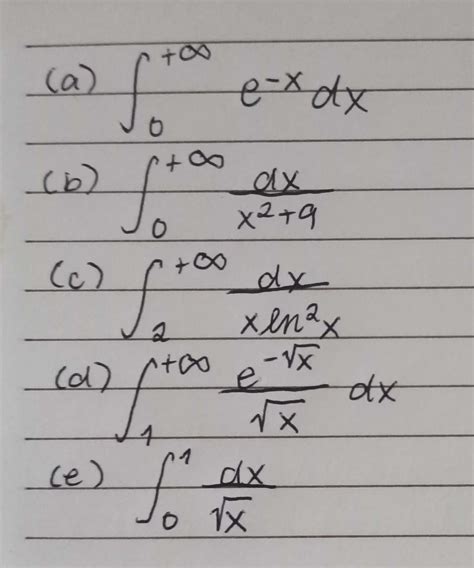 (a) ∫₀^{+∞} e^{-x} dx
(b) ∫₀^{+∞} dx/(x²+9)
(c) ∫₂^{+∞} dx/(x ln²x)
(d) ∫₁^{+∞} e^{-√x}/√x dx
(e) ∫₀^1 dx/√x